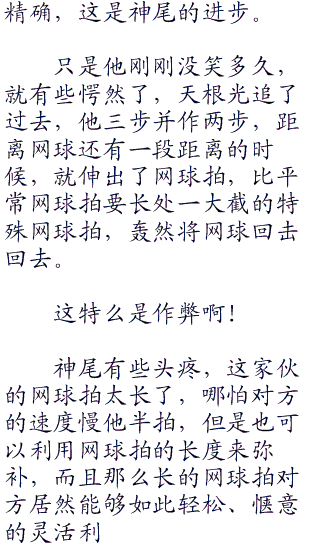 精确，这是神尾的进步。
只是他刚刚没笑多久，
就有些愕然了，天根光追了
过去，他三步并作两步，距
离网球还有一段距离的时
候，就伸出了网球拍，比平
常网球拍要长处一大截的特
殊网球拍，轰然将网球回击
回去。
这特么是作弊啊！
神尾有些头疼，这家伙
的网球拍太长了，哪怕对方
的速度慢他半拍，但是也可
以利用网球拍的长度来弥
补，而且那么长的网球拍对
方居然能够如此轻松、惬意
的灵活利